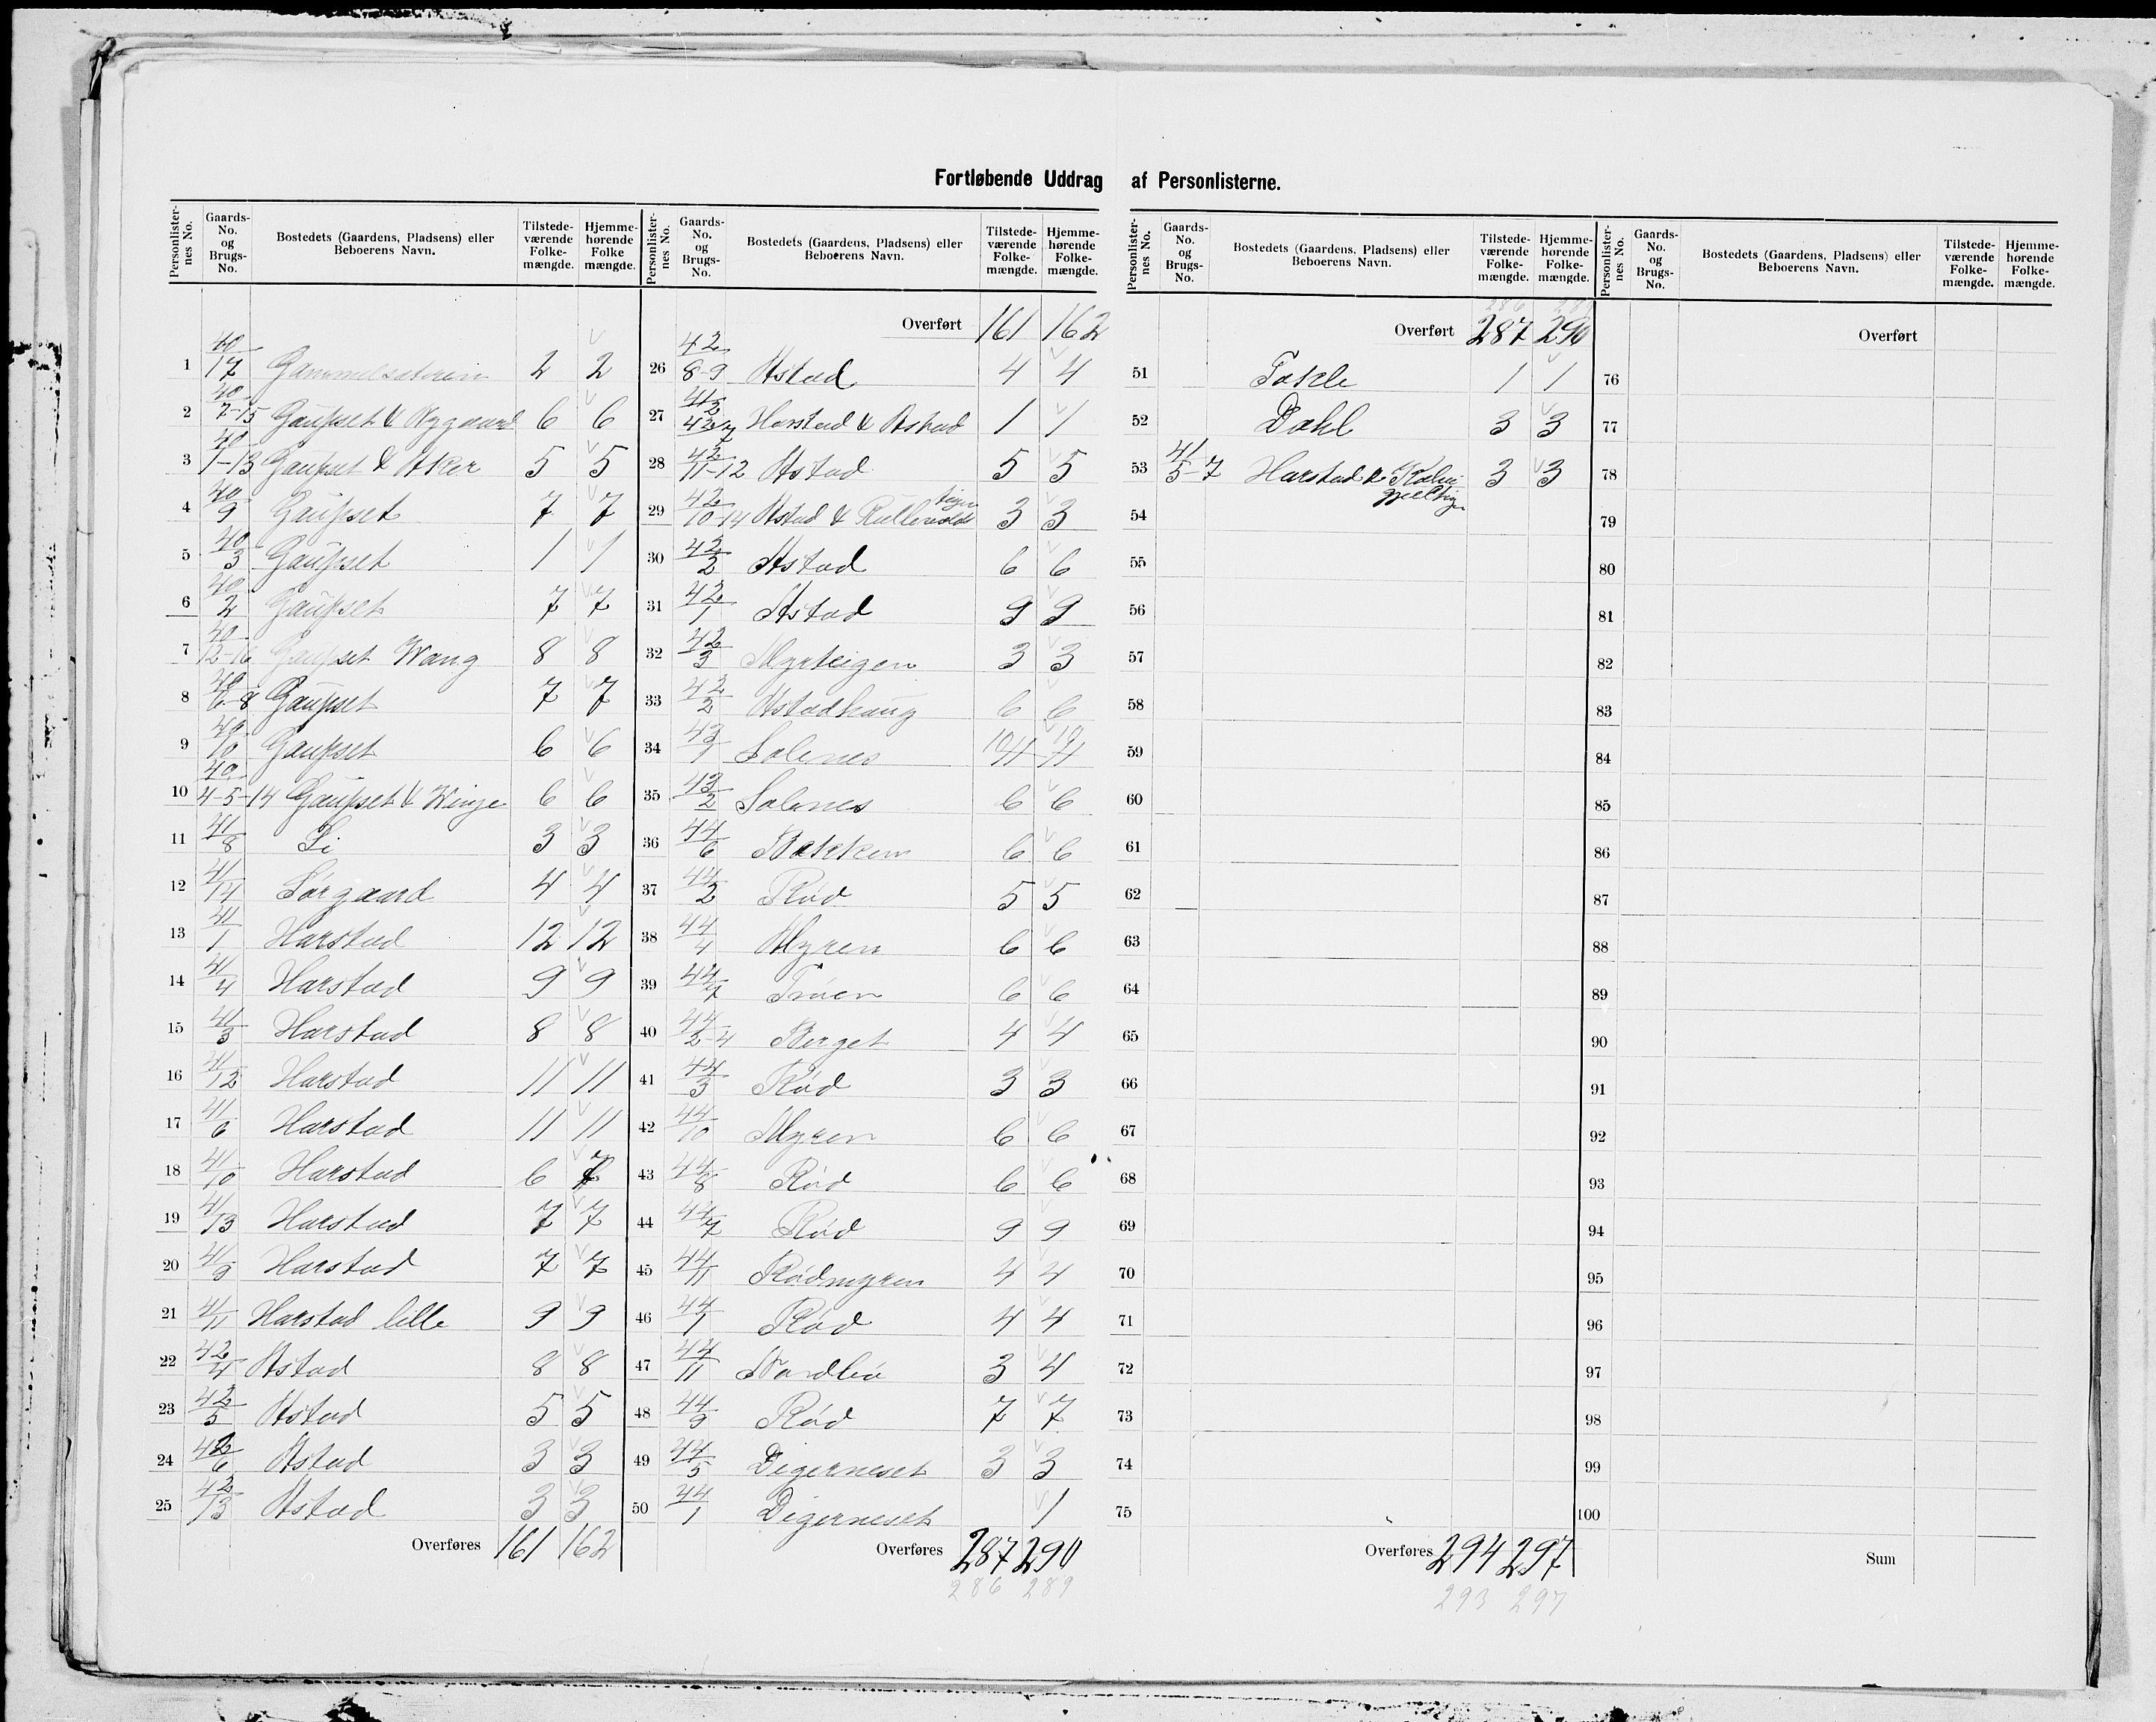 Fortløbende Uddrag af Personlisterne.
Personlisternes No. Gaards-No. og Brugs-No. Bostedets (Gaardens, Pladsens) eller Beboerens Navn. Tilstedeværende Folkemængde. Hjemmehørende Folkemængde.
1 40/17 Gammelsæteren 2 2
2 40/7-15 Gaupset & Nygaard 6 6
3 40/1-13 Gaupset & Aker 5 5
4 40/9 Gaupset 7 7
5 40/3 Gaupset 1 1
6 40/2 Gaupset 7 7
7 40/12-16 Gaupset Wang 8 8
8 40/6-8 Gaupset 7 7
9 40/10 Gaupset 6 6
10 40/4-5-14 Gaupset & Winje 6 6
11 41/8 Li 3 3
12 41/14 Sørgaard 4 4
13 41/1 Harstad 12 12
14 41/4 Harstad 9 9
15 41/3 Harstad 8 8
16 41/12 Harstad 11 11
17 41/6 Harstad 11 11
18 41/10 Harstad 6 7
19 41/13 Harstad 7 7
20 41/9 Harstad 7 7
21 41/11 Harstad lille 9 9
22 42/4 Astad 8 8
23 42/5 Astad 5 5
24 42/6 Astad 3 3
25 42/13 Astad 3 3
Overføres 161 162
Personlisternes No. Gaards-No. og Brugs-No. Bostedets (Gaardens, Pladsens) eller Beboerens Navn. Tilstedeværende Folkemængde. Hjemmehørende Folkemængde.
Overført 161 162
26 42/8-9 Astad 4 4
27 41/2 42/7 Harstad & Astad 1 1
28 42/11-12 Astad 5 5
29 42/10-14 Astad & 3 3
30 42/2 Astad 6 6
31 42/1 Astad 9 9
32 42/3 Myrteigen 3 3
33 42/2 Astadhaug 6 6
34 43/1 Solenes 10 10
35 43/2 Solenes 6 6
36 44/6 Bakken 6 6
37 44/2 Rød 5 5
38 44/4 Myren 6 6
39 44/7 Trøen 6 6
40 44/2-4 Berget 4 4
41 44/3 Rød 3 3
42 44/10 Myren 6 6
43 44/8 Rød 6 6
44 44/7 Rød 9 9
45 44/11 Rødmyren 4 4
46 44/1 Rød 4 4
47 44/11 Nordlia 3 4
48 44/9 Rød 7 7
49 44/5 Digerneset 3 3
50 44/1 Digerneset 1
Overføres 287 290
286 289
Personlisternes No. Gaards-No. og Brugs-No. Bostedets (Gaardens, Pladsens) eller Beboerens Navn. Tilstedeværende Folkemængde. Hjemmehørende Folkemængde.
286 289
Overført 287 290
51 Takle 1 1
52 Dahl 3 3
53 41/5-7 Harstad & 3 3
54
55
56
57
58
59
60
61
62
63
64
65
66
67
68
69
70
71
72
73
74
75
Overføres 294 297
293 297
Personlisternes No. Gaards-No. og Brugs-No. Bostedets (Gaardens, Pladsens) eller Beboerens Navn. Tilstedeværende Folkemængde. Hjemmehørende Folkemængde.
Overført
76
77
78
79
80
81
82
83
84
85
86
87
88
89
90
91
92
93
94
95
96
97
98
99
100
Sum